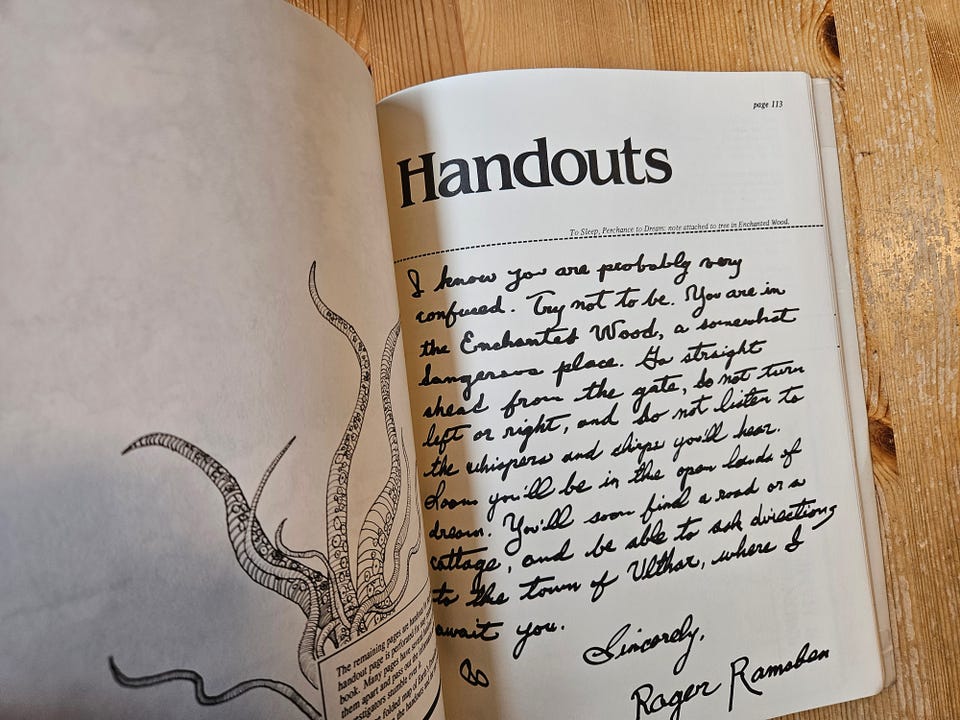 The remaining pages are handouts
handout page is perforated
book. Many pages have several
them apart and pass out the
investigators stumble over
folded map of
the handouts and
page 113
Handouts
To Sleep, Perchance to Dream: note attached to tree in Enchanted Wood.
I know you are probably very
confused. Try not to be. You are in
the Enchanted Wood, a somewhat
dangerous place. Go straight
ahead from the gate, do not turn
left or right, and do not listen to
the whispers and chirps you'll hear.
Soon you'll be in the open lands of
dream. You'll soon find a road or a
cottage, and be able to ask directions
to the town of Ulthar, where I
await you.
Sincerely,
Roger Ramsben